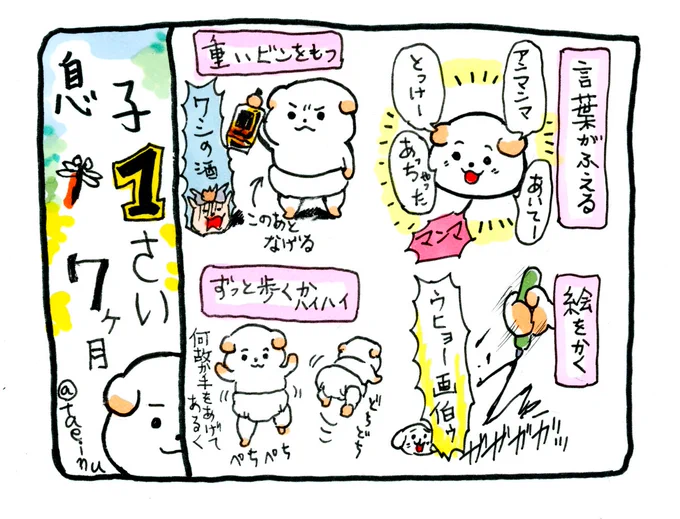 息子
1さい
7ヶ月
@taeinu
言葉がふえる
アンマンマ
とっけー
あっちゃった
あいてー
マンマ
重いビンをもつ
ワシの酒
このあと
なげる
絵をかく
ウヒョー画伯ゥ
ガガガガガッ
ずっと歩くか
ハイハイ
何故か手をあげて
あるく
ぺちぺち
どちどち